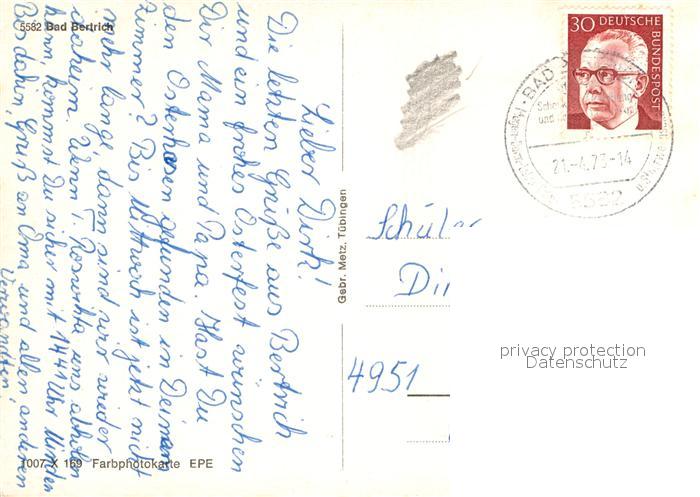 5582 Bad Bertrich
Lieber Dirk!
Die letzten Grüße aus Bertrich
und ein frohes Osterfest wünschen
Dir Mama und Papa. Hast Du
den Osterhasen gefunden in Deinem
Zimmer? Bis Mittwoch ist jetzt nicht
mehr lange, dann sind wir wieder
daheim. Wenn T. Roswitha uns abholen
kann, kommst Du sicher mit 14.41 Uhr Minden
Bis dahin, Gruß an Oma und allen anderen
Verwandten.
1007 X 169 Farbphotokarte EPE
Gebr. Metz, Tübingen
30 DEUTSCHE
BUNDESPOST
BAD
21.-4.73-14
5582
Schüler
Dir
4951
privacy protection
Datenschutz